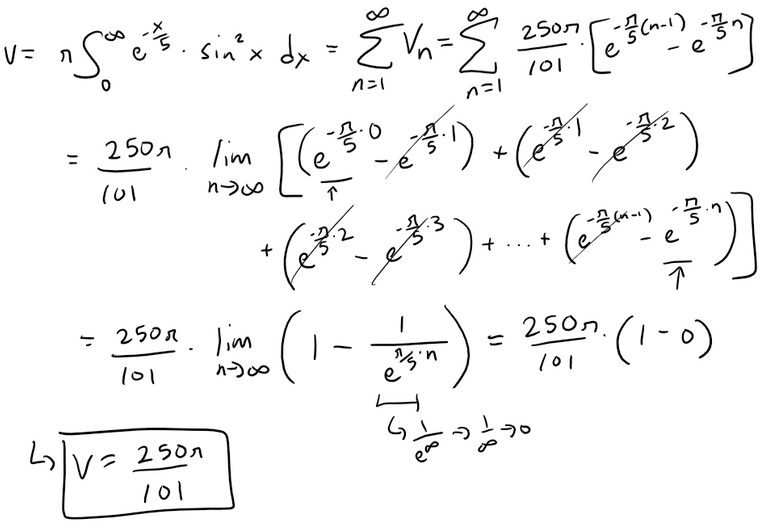 V = π∫₀^∞ e^(-x/5) · sin²x dx = ∑_(n=1)^∞ Vₙ = ∑_(n=1)^∞ 250π/101 · [e^(-π/5(n-1)) - e^(-π/5 n)]
= 250π/101 · lim_(n→∞) [(e^(-π/5·0) - e^(-π/5·1)) + (e^(-π/5·1) - e^(-π/5·2))
+ (e^(-π/5·2) - e^(-π/5·3)) + ... + (e^(-π/5(n-1)) - e^(-π/5·n))]
= 250π/101 · lim_(n→∞) (1 - 1/e^(π/5·n)) = 250π/101 · (1 - 0)
↳ 1/e^∞ → 1/∞ → 0
↳ V = 250π/101